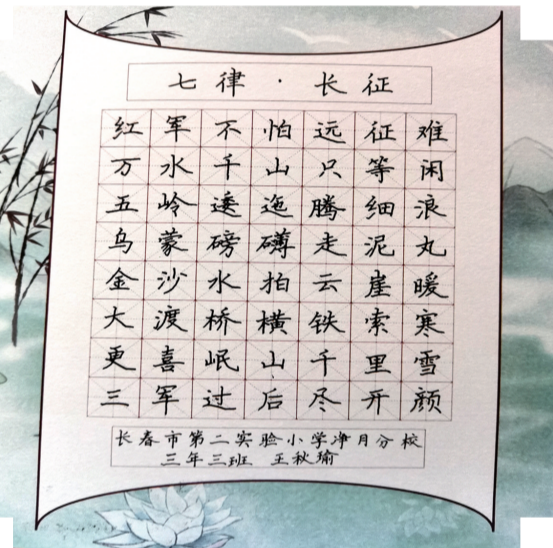 七律·长征
红军不怕远征难
万水千山只等闲
五岭逶迤腾细浪
乌蒙磅礴走泥丸
金沙水拍云崖暖
大渡桥横铁索寒
更喜岷山千里雪
三军过后尽开颜
长春市第二实验小学净月分校
三年三班 王秋瑜